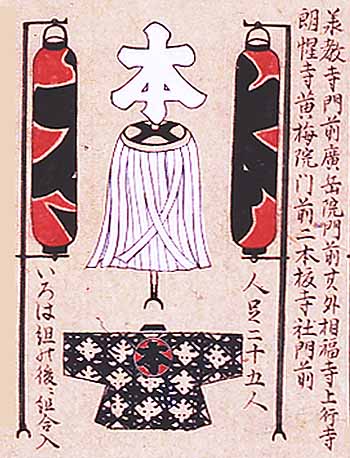 承教寺門前廣岳院門前其外相福寺上行寺
朗惺寺黄梅院門前二本榎寺社門前
本
人足二十五人
いろは組の後ニ組合入
本